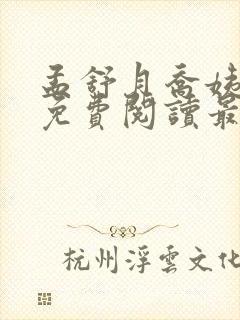 孟舒月喬姨
免費閱讀最
杭州浮雲文化